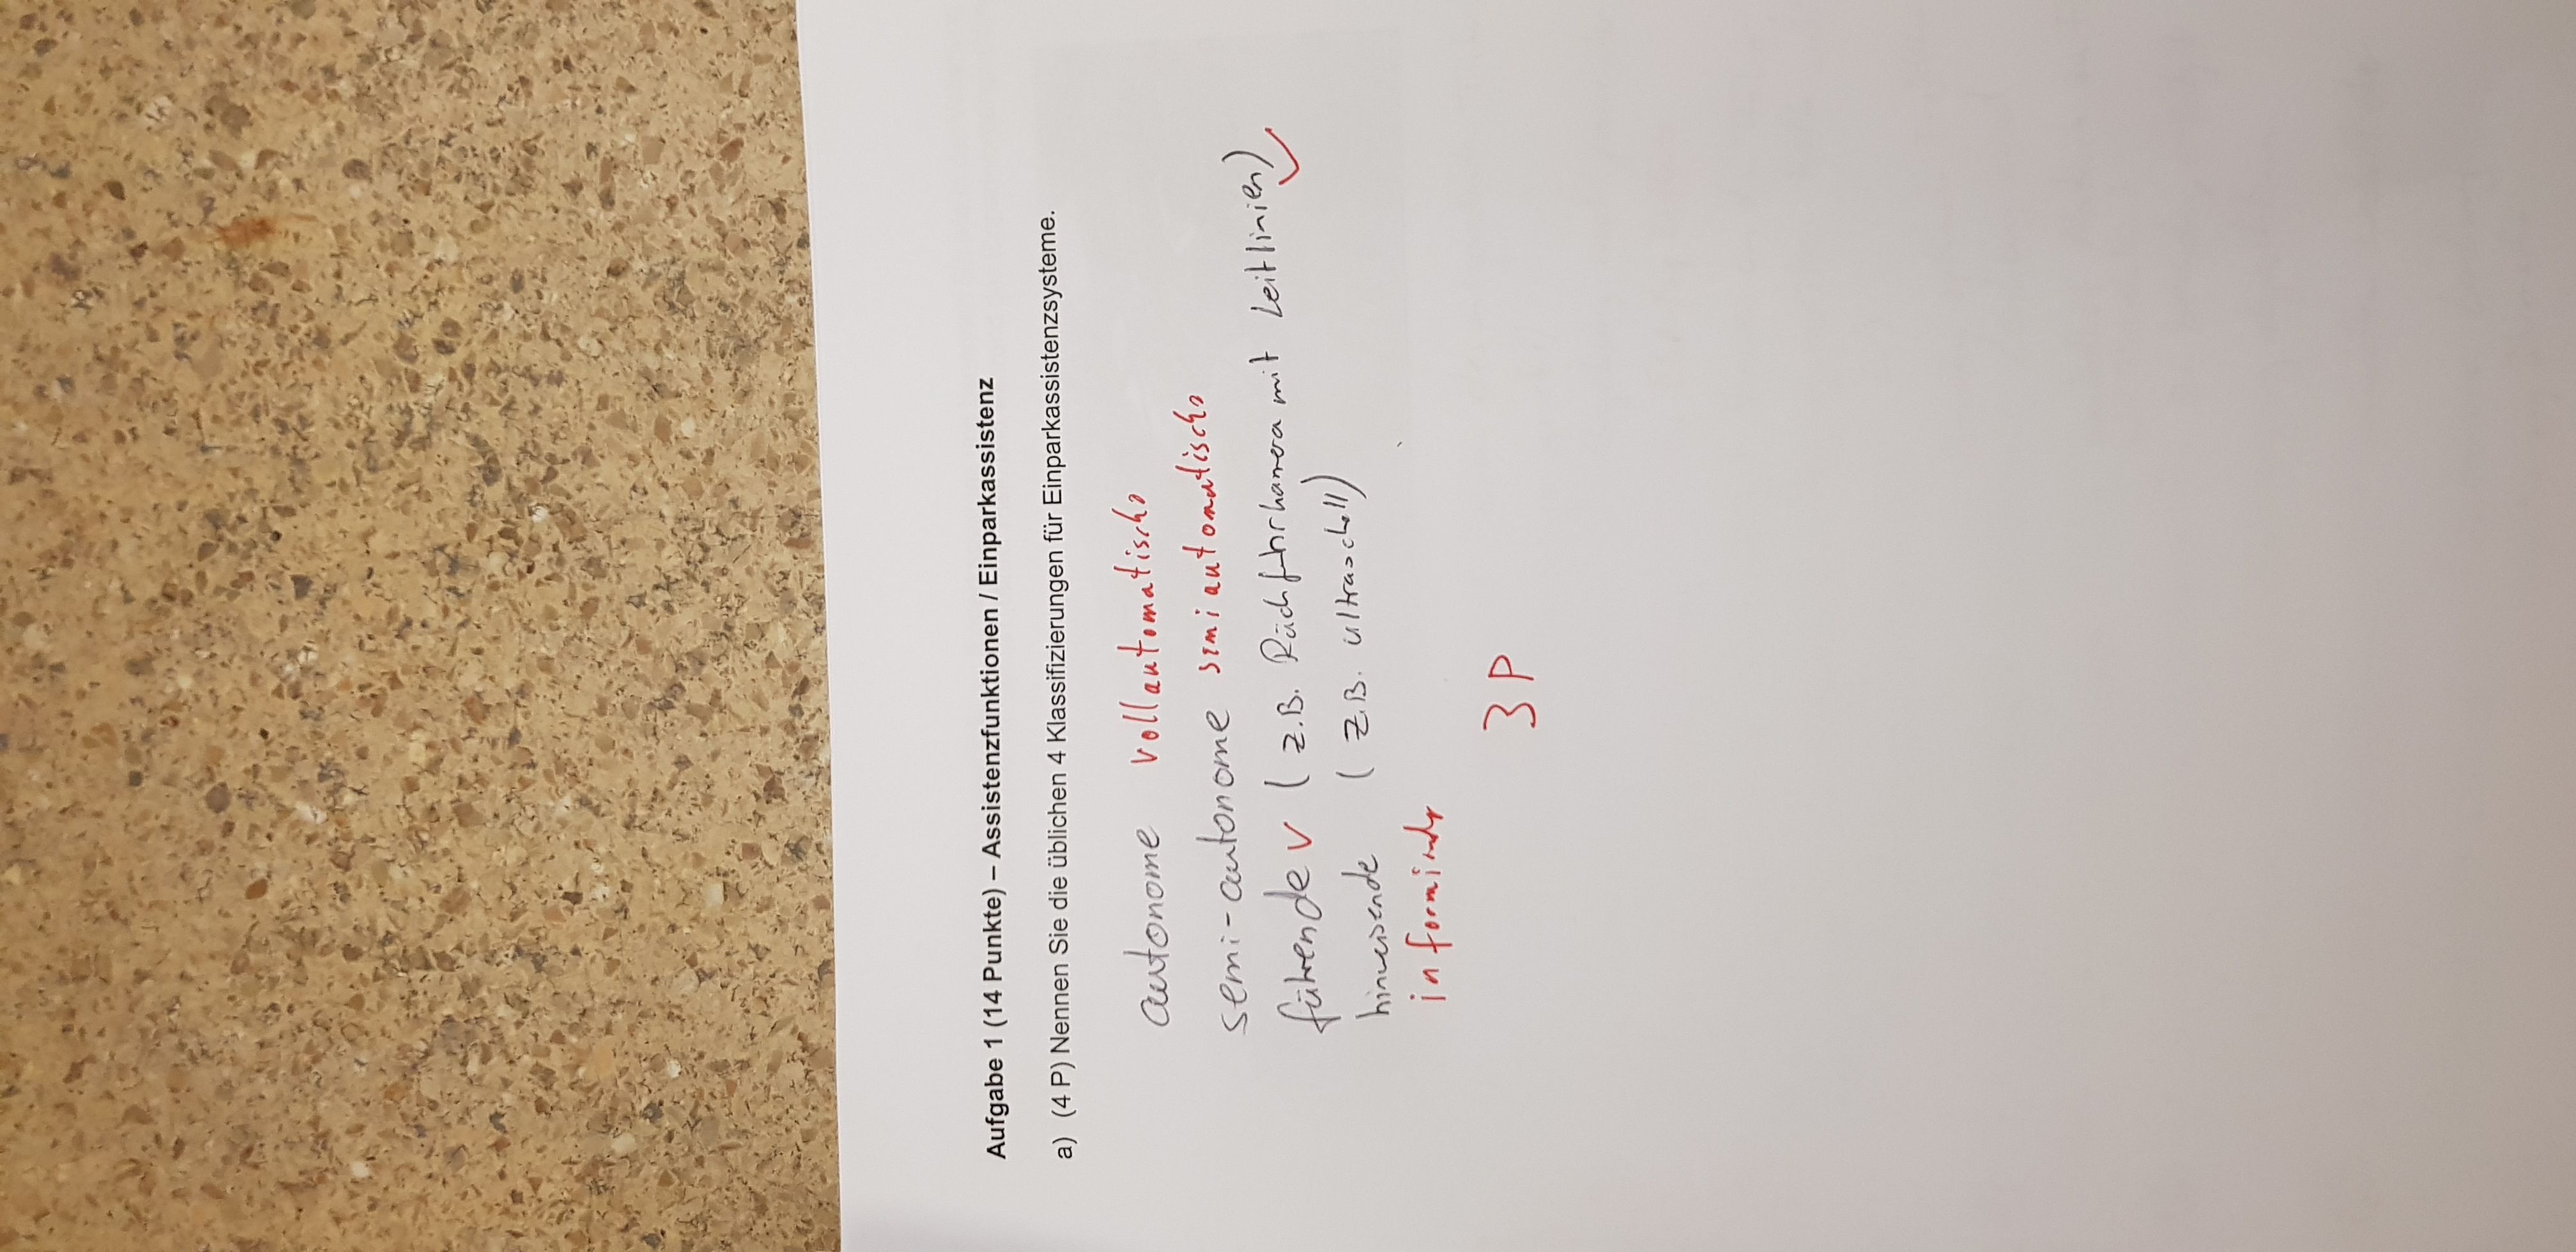 Aufgabe 1 (14 Punkte) – Assistenzfunktionen / Einparkassistenz
a) (4 P) Nennen Sie die üblichen 4 Klassifizierungen für Einparkassistenzsysteme.
autonome vollautomatische
semi-autonome semiautomatische
führende ✓ (z.B. Rückfahrkamera mit Leitlinien) ✓
hinweisende (z.B. Ultraschall)
3 P